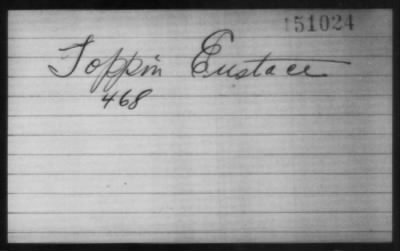 151024
Toppin Eustace
468